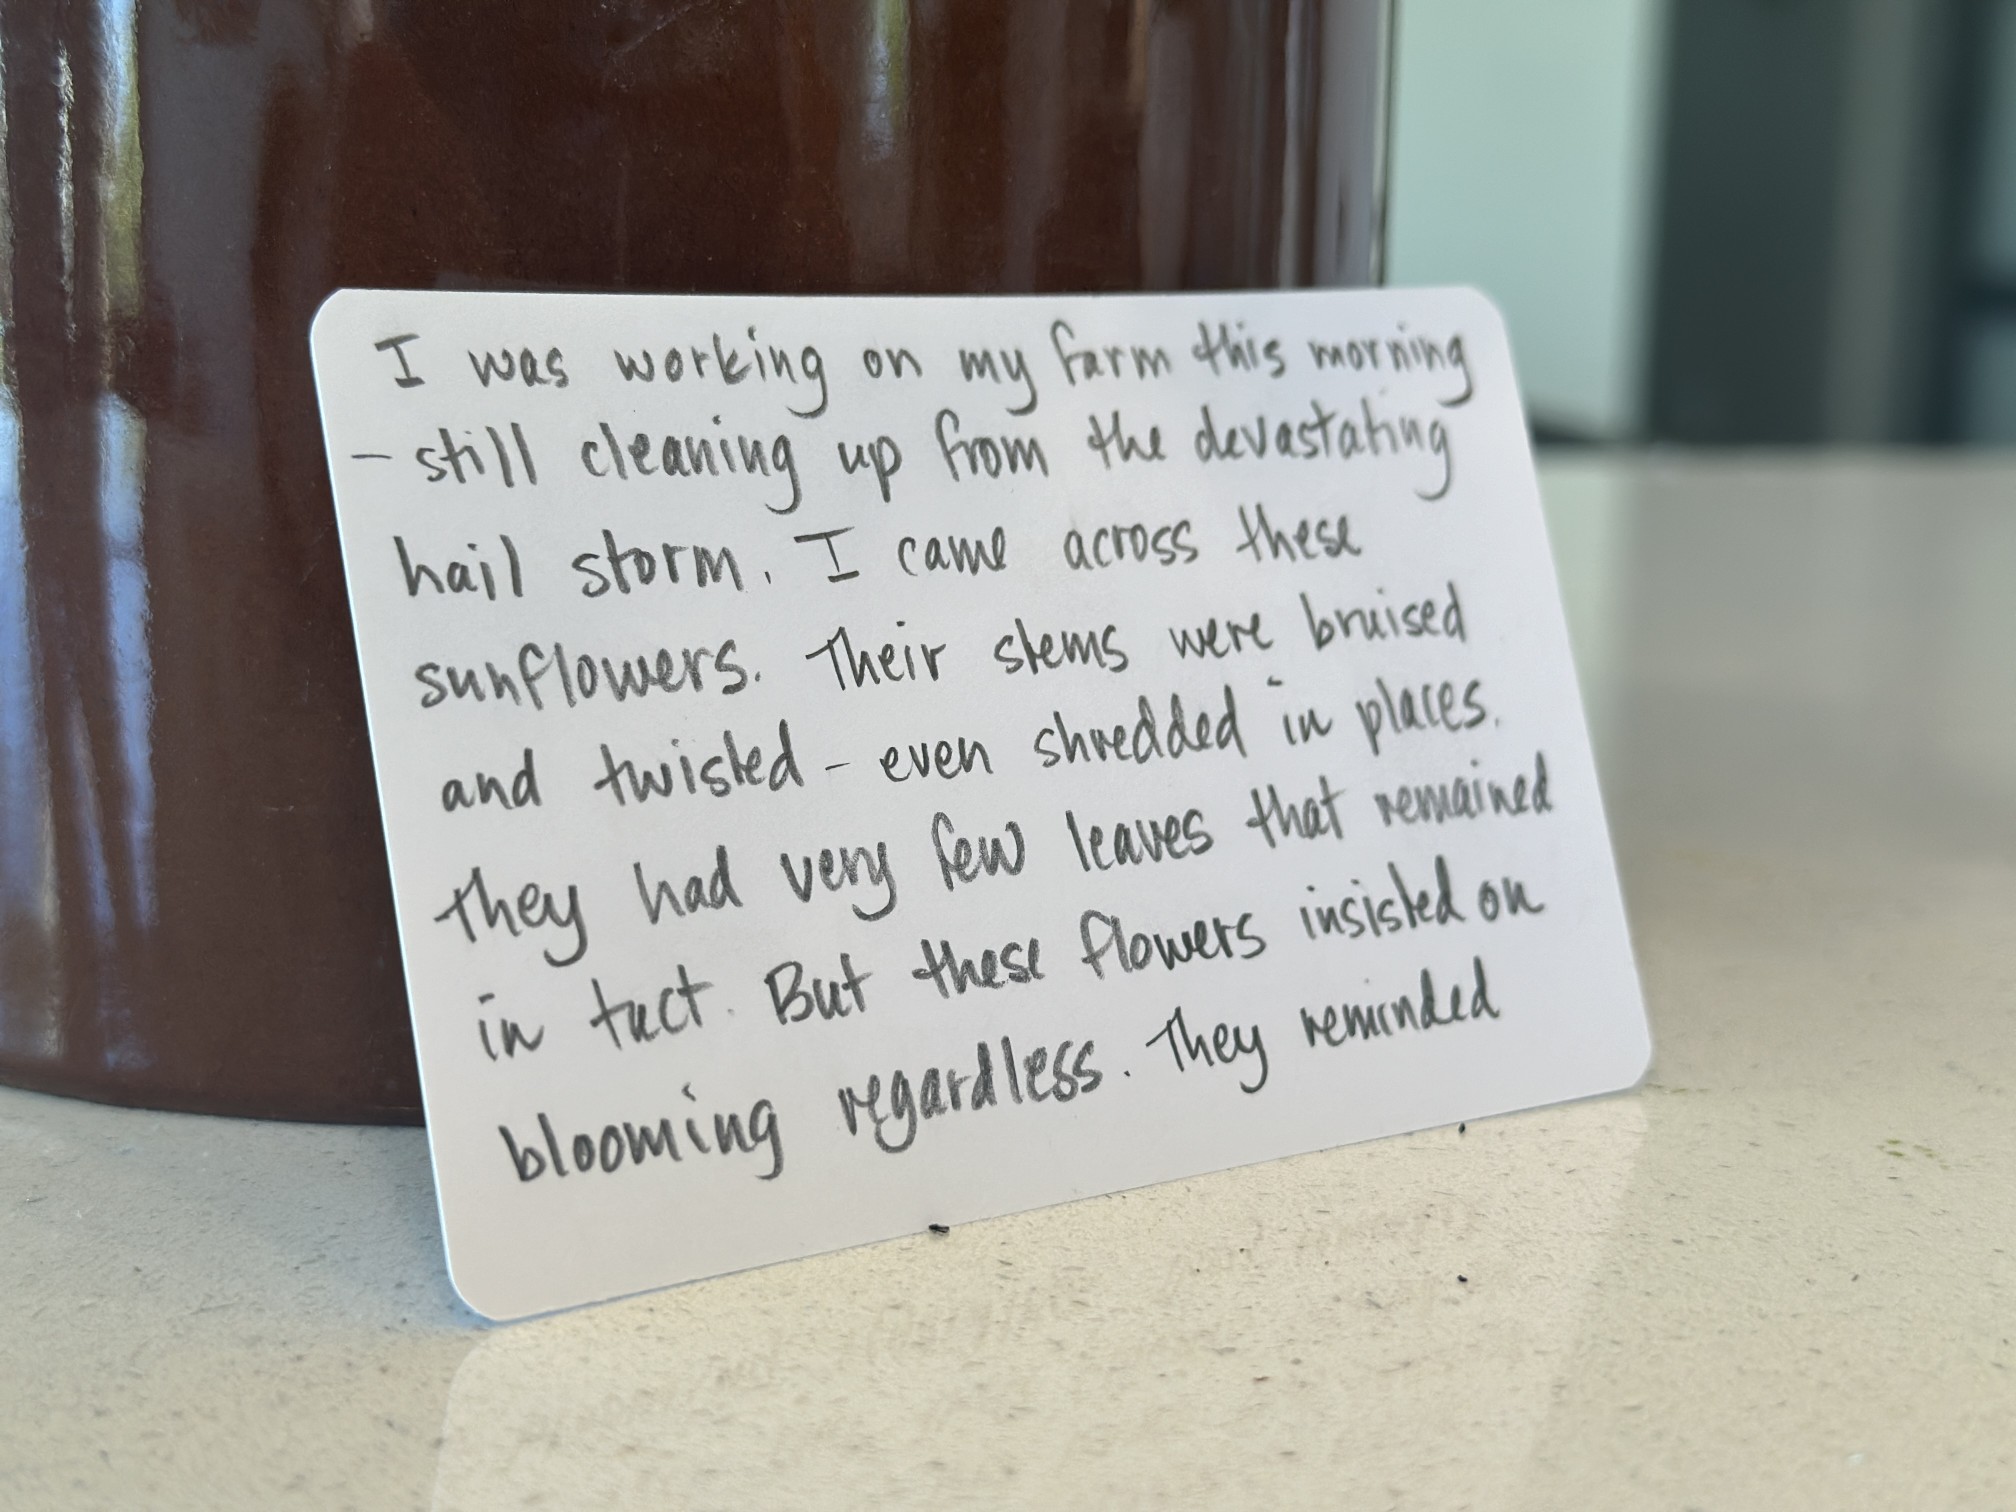 I was working on my farm this morning
- still cleaning up from the devastating
hail storm. I came across these
sunflowers. Their stems were bruised
and twisted - even shredded in places.
They had very few leaves that remained
in tact. But these flowers insisted on
blooming regardless. They reminded